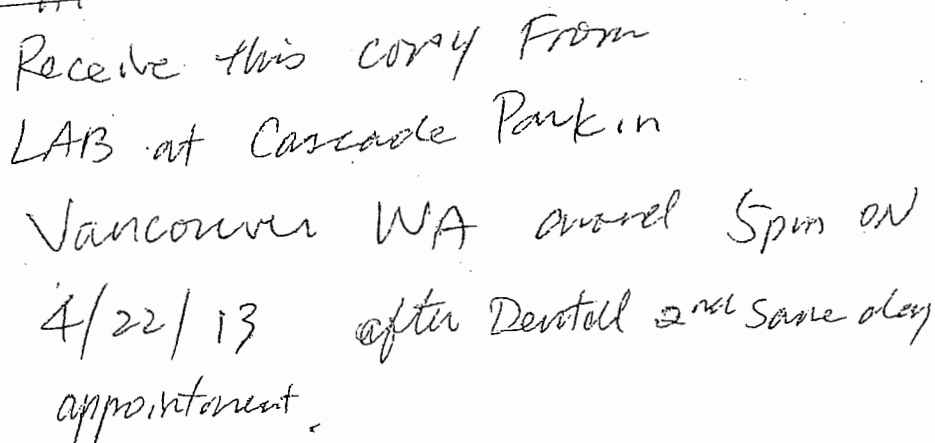 Receive this copy From
LAB at Cascade Park in
Vancouver WA around 5pm ON
4/22/13 after Dentall 2nd same day
appointment.